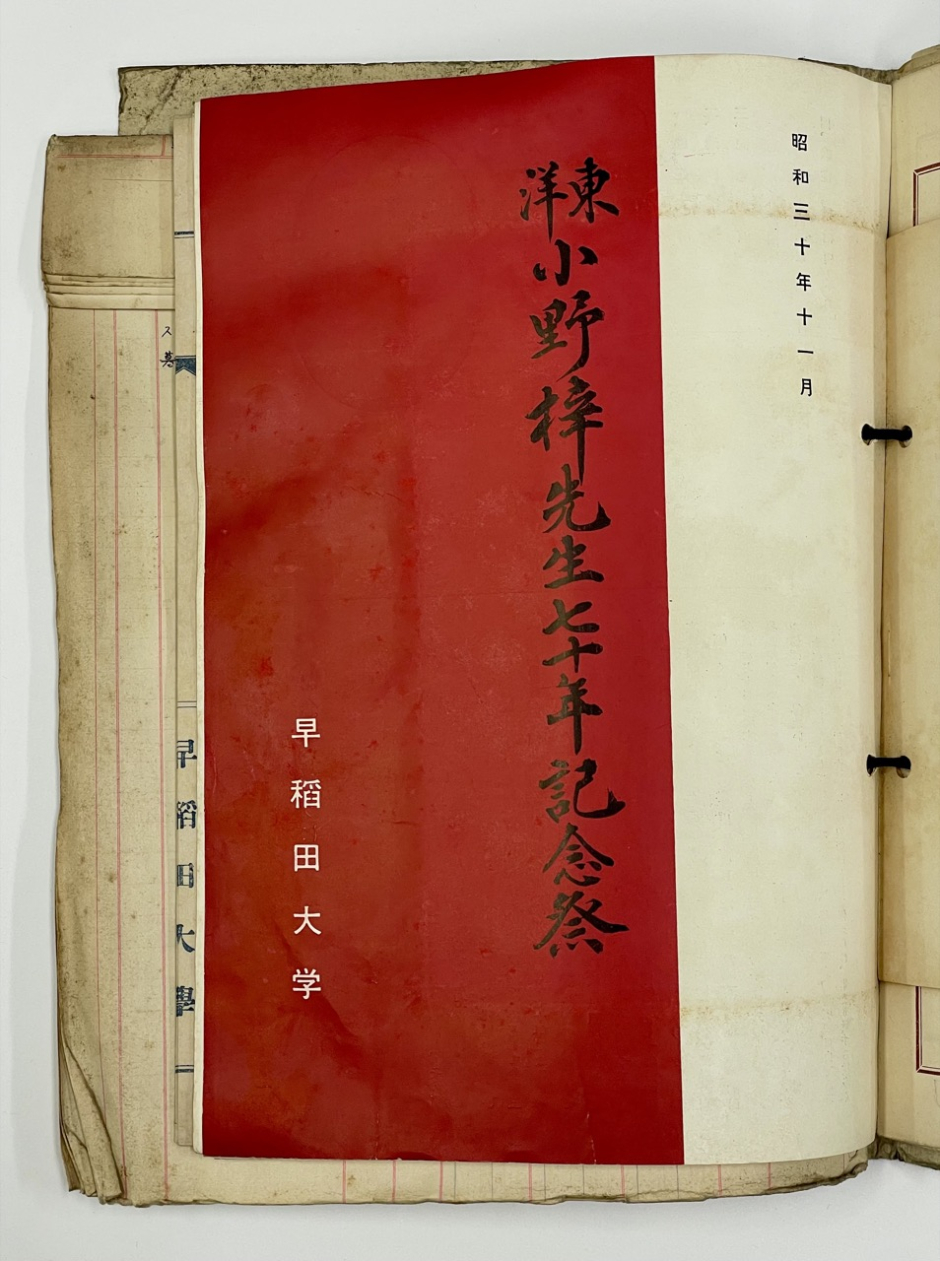 昭和三十年十一月
東洋小野梓先生七十年記念祭
早稲田大学
早稲田大學